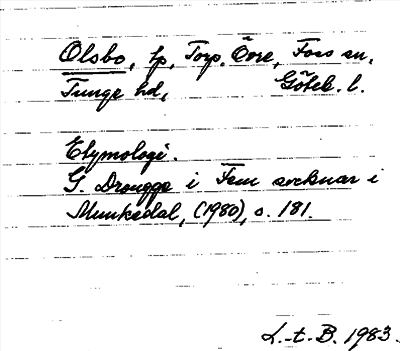 Olsbo, tp, Torp. Övre, Foss sn,
Tunge hd, Göteb. l.
Etymologi.
G. Drougge i Fem socknar i
Munkedal, (1980), s. 181.
L.-t. B. 1983.